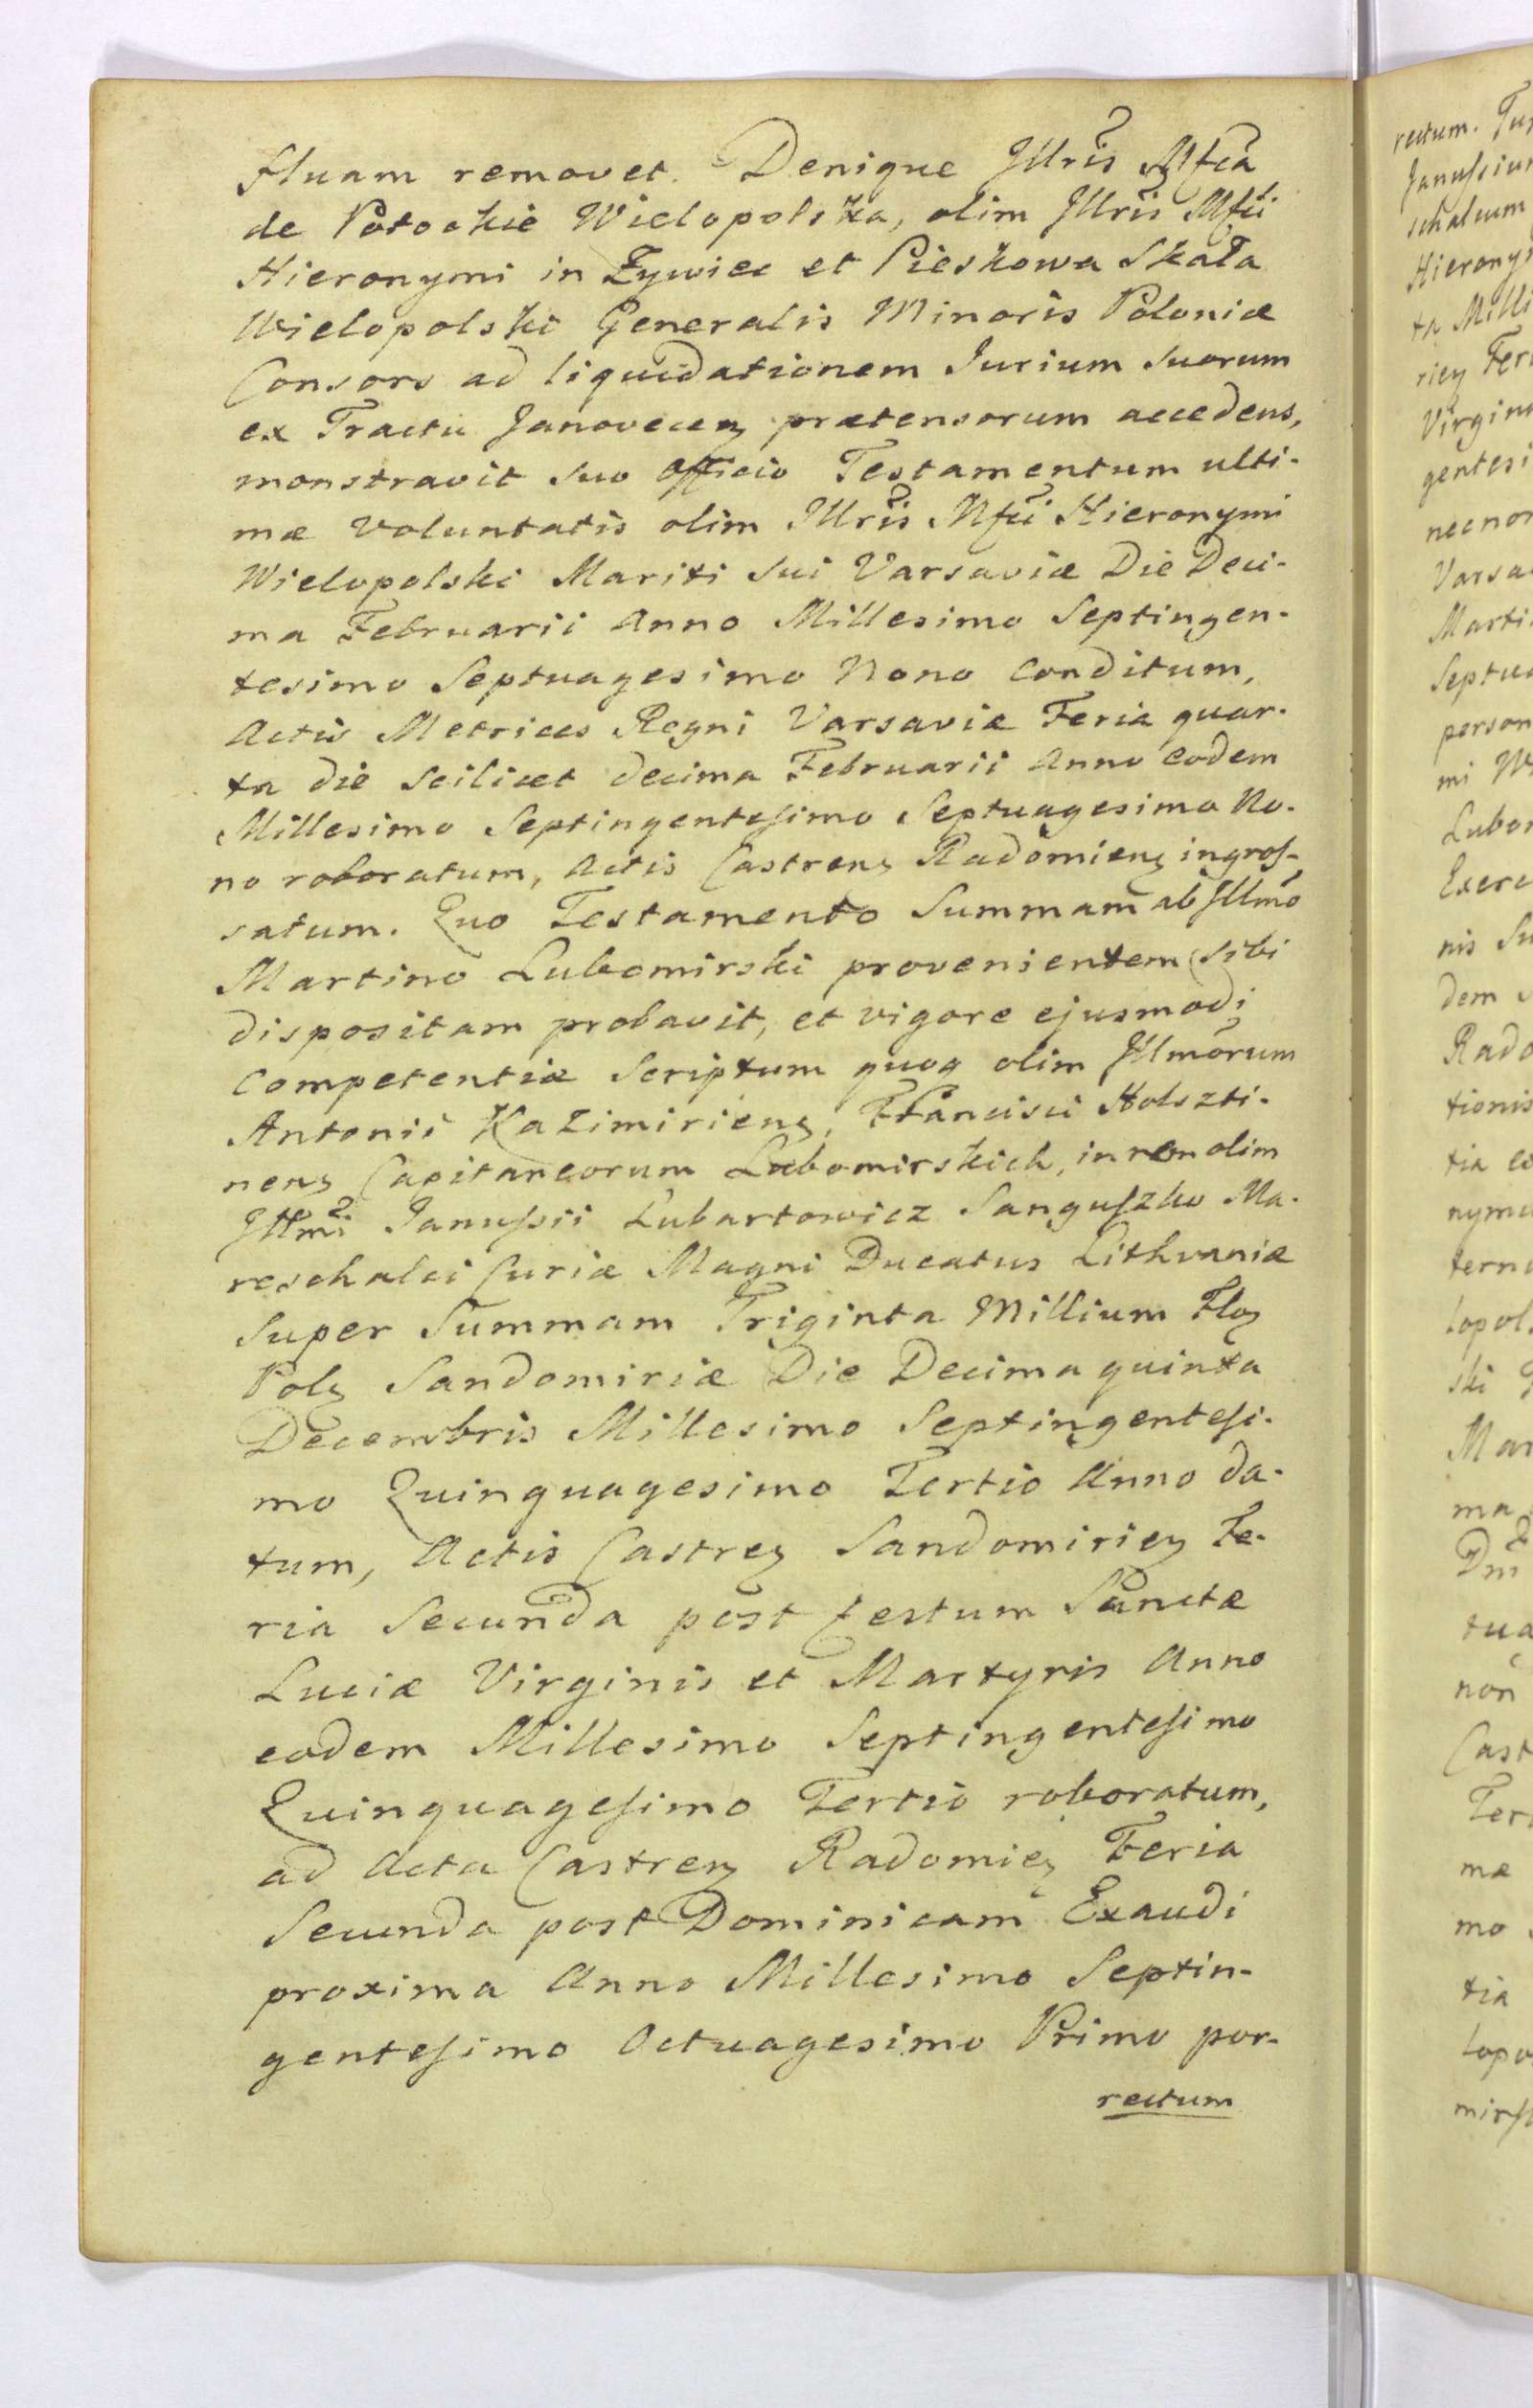 stuam removet. Denique Jllris Mfca
de Potockie Wielopolska, olim Jllris Mfci
Hieronymi in Zywiec et Pieskowa Skała
Wielopolski Generalis Minoris Poloniæ
Consors ad liquidationem Jurium suorum
ex Tractu Janovecen prætensorum accedens,
monstravit suo Officio Testamentum ulti-
mæ voluntatis olim Jllris Mfci Hieronymi
Wielopolski Mariti sui Varsaviæ Die Deci-
ma Februarii Anno Millesimo Septingen-
tesimo Septuagesimo Nono Conditum,
Actis Metrices Regni Varsaviæ Feria quar-
ta die scilicet decima Februarii Anno eodem
Millesimo Septingentesimo Septuagesimo No-
no roboratum, Actis Castrens Radomiens ingros-
satum. Quo Testamento Summam ab Jllmo
Martino Lubomirski provenientem sibi
dispositam probavit, et vigore ejusmodi
Competentiæ Scriptum quoq olim Jllmorum
Antonii Kazimiriens, Francisci Holszti-
nens Capitaneorum Lubomirskich, in rem olim
Jllmi Janussii Lubartowicz Sanguszko Ma-
reschalci Curiæ Magni Ducatus Lithvaniæ
Super Summam Triginta Millium Flo
Pol Sandomiriæ Die Decima quinta
Decembris Millesimo Septingentesi-
mo Quinquagesimo Tertio Anno da-
tum, Actis Castren Sandomirien Fe-
ria Secunda post festum Sanctæ
Luciæ Virginis et Martyris Anno
eodem Millesimo Septingentesimo
Quinquagesimo Tertio roboratum,
ad Acta Castren Radomien Feria
Secunda post Dominicam Exaudi
proxima Anno Millesimo Septin-
gentesimo Octuagesimo Primo por-
rectum
rectum.
schalcum
ta Milli
Virgin
gentesi
Varsa
Marti
Septua
person
mi W
Lubo
Exerc
nis Su
dem
Rado
tionis
tia
nym
tern
lopol
ski
Mar
ma
tua
non
Cast
mæ
mo
tia
lopo